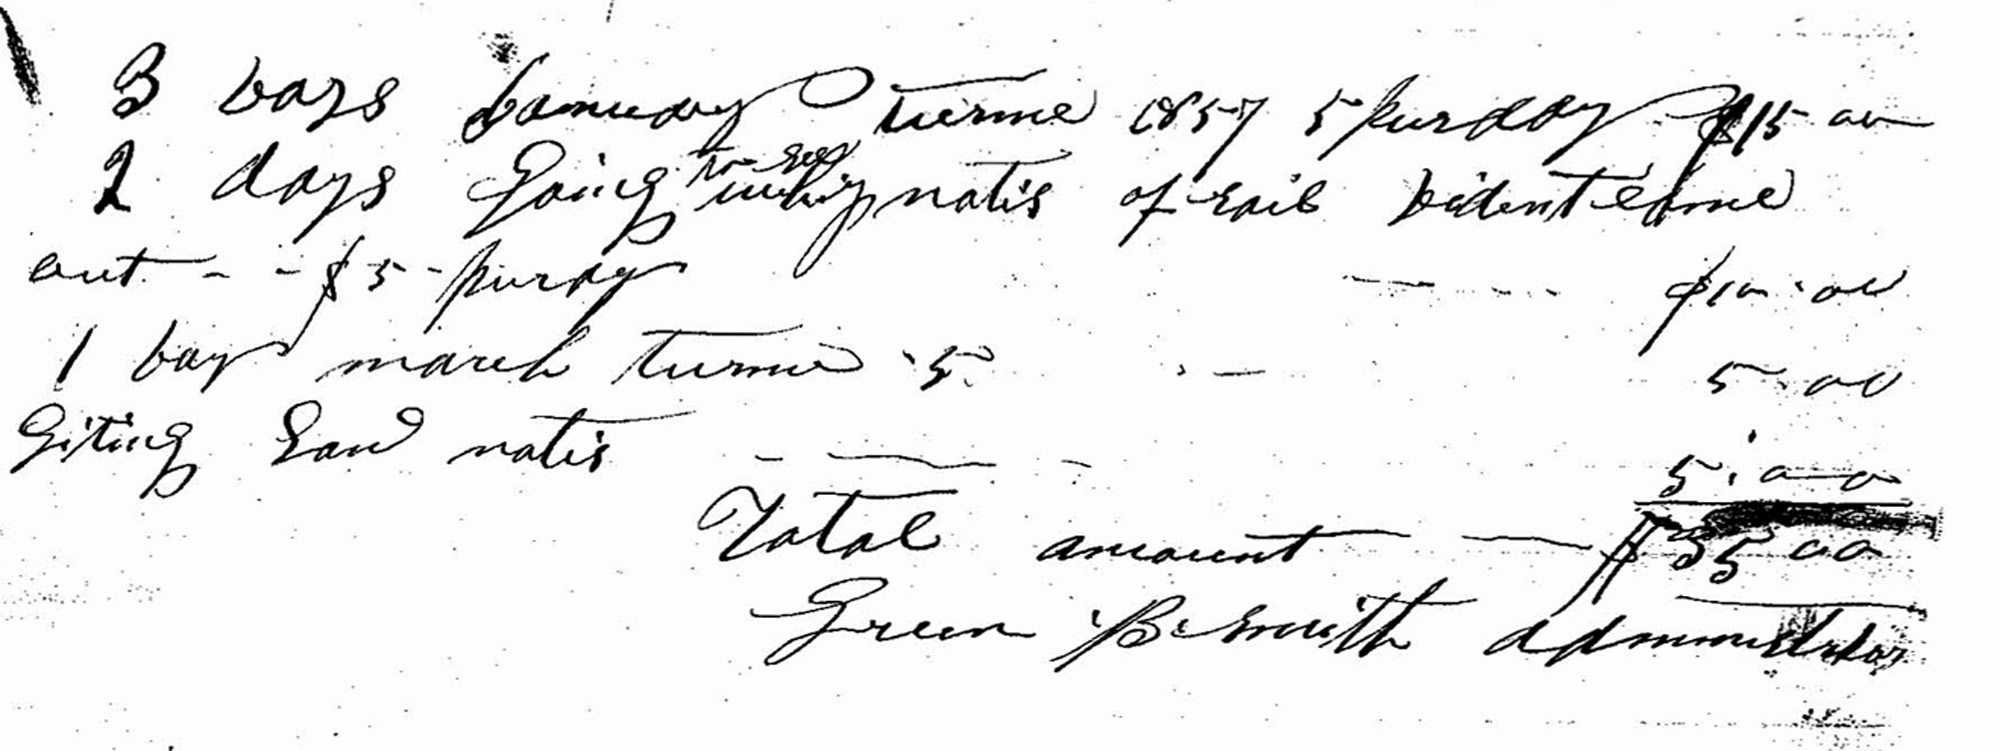 3 days January turme 1857 5 pur day $15 00
2 days Going to see notis of sail
out - - $5 - purdy - - - - - $10.00
1 day march turme 5 - - 5 00
Giting Saw notis - - - 5.00
Total amount - $35 00
Green B. Smith administrator